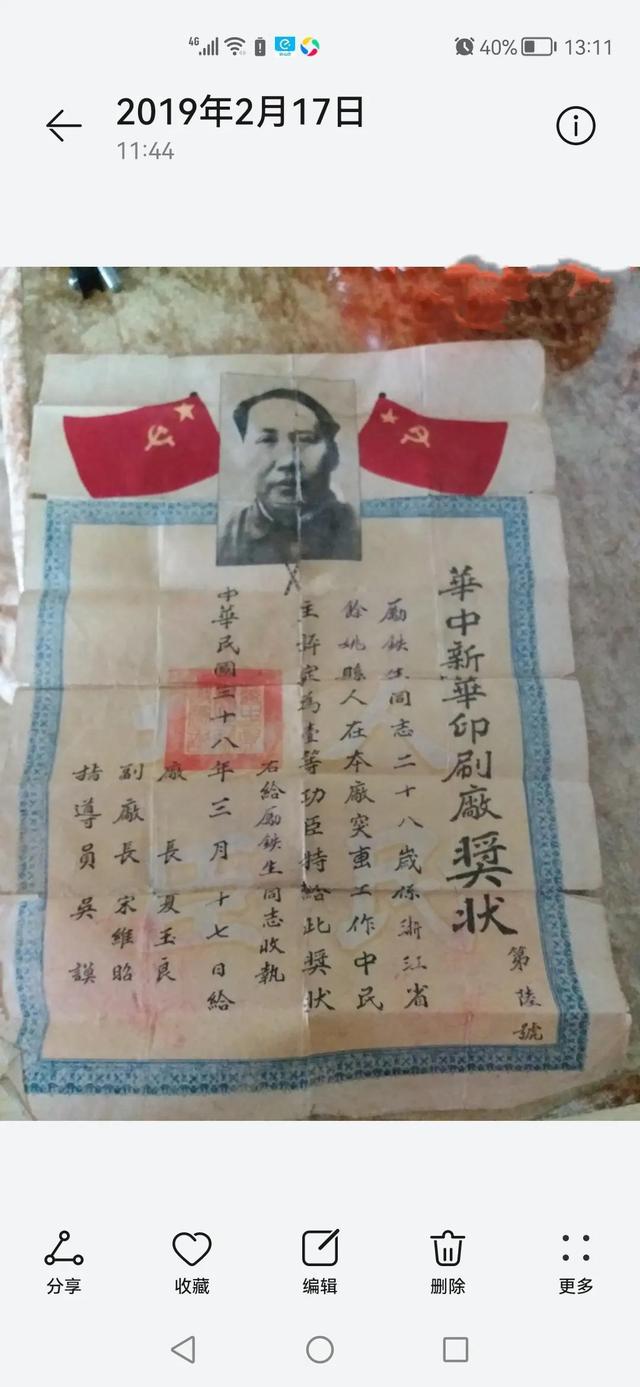 4G
40%
13:11
2019年2月17日
11:44
華中新華印刷廠獎狀
第陸號
勵鉄生同志二十八歲係浙江省
餘姚縣人在本廠突重工作中民
主評定為壹等功臣特給此獎狀
右給勵鉄生同志收執
中華民國三十八年三月十七日給
廠長 夏玉良
副廠長 宋維昭
指導員 吳謨
分享
收藏
编辑
删除
更多